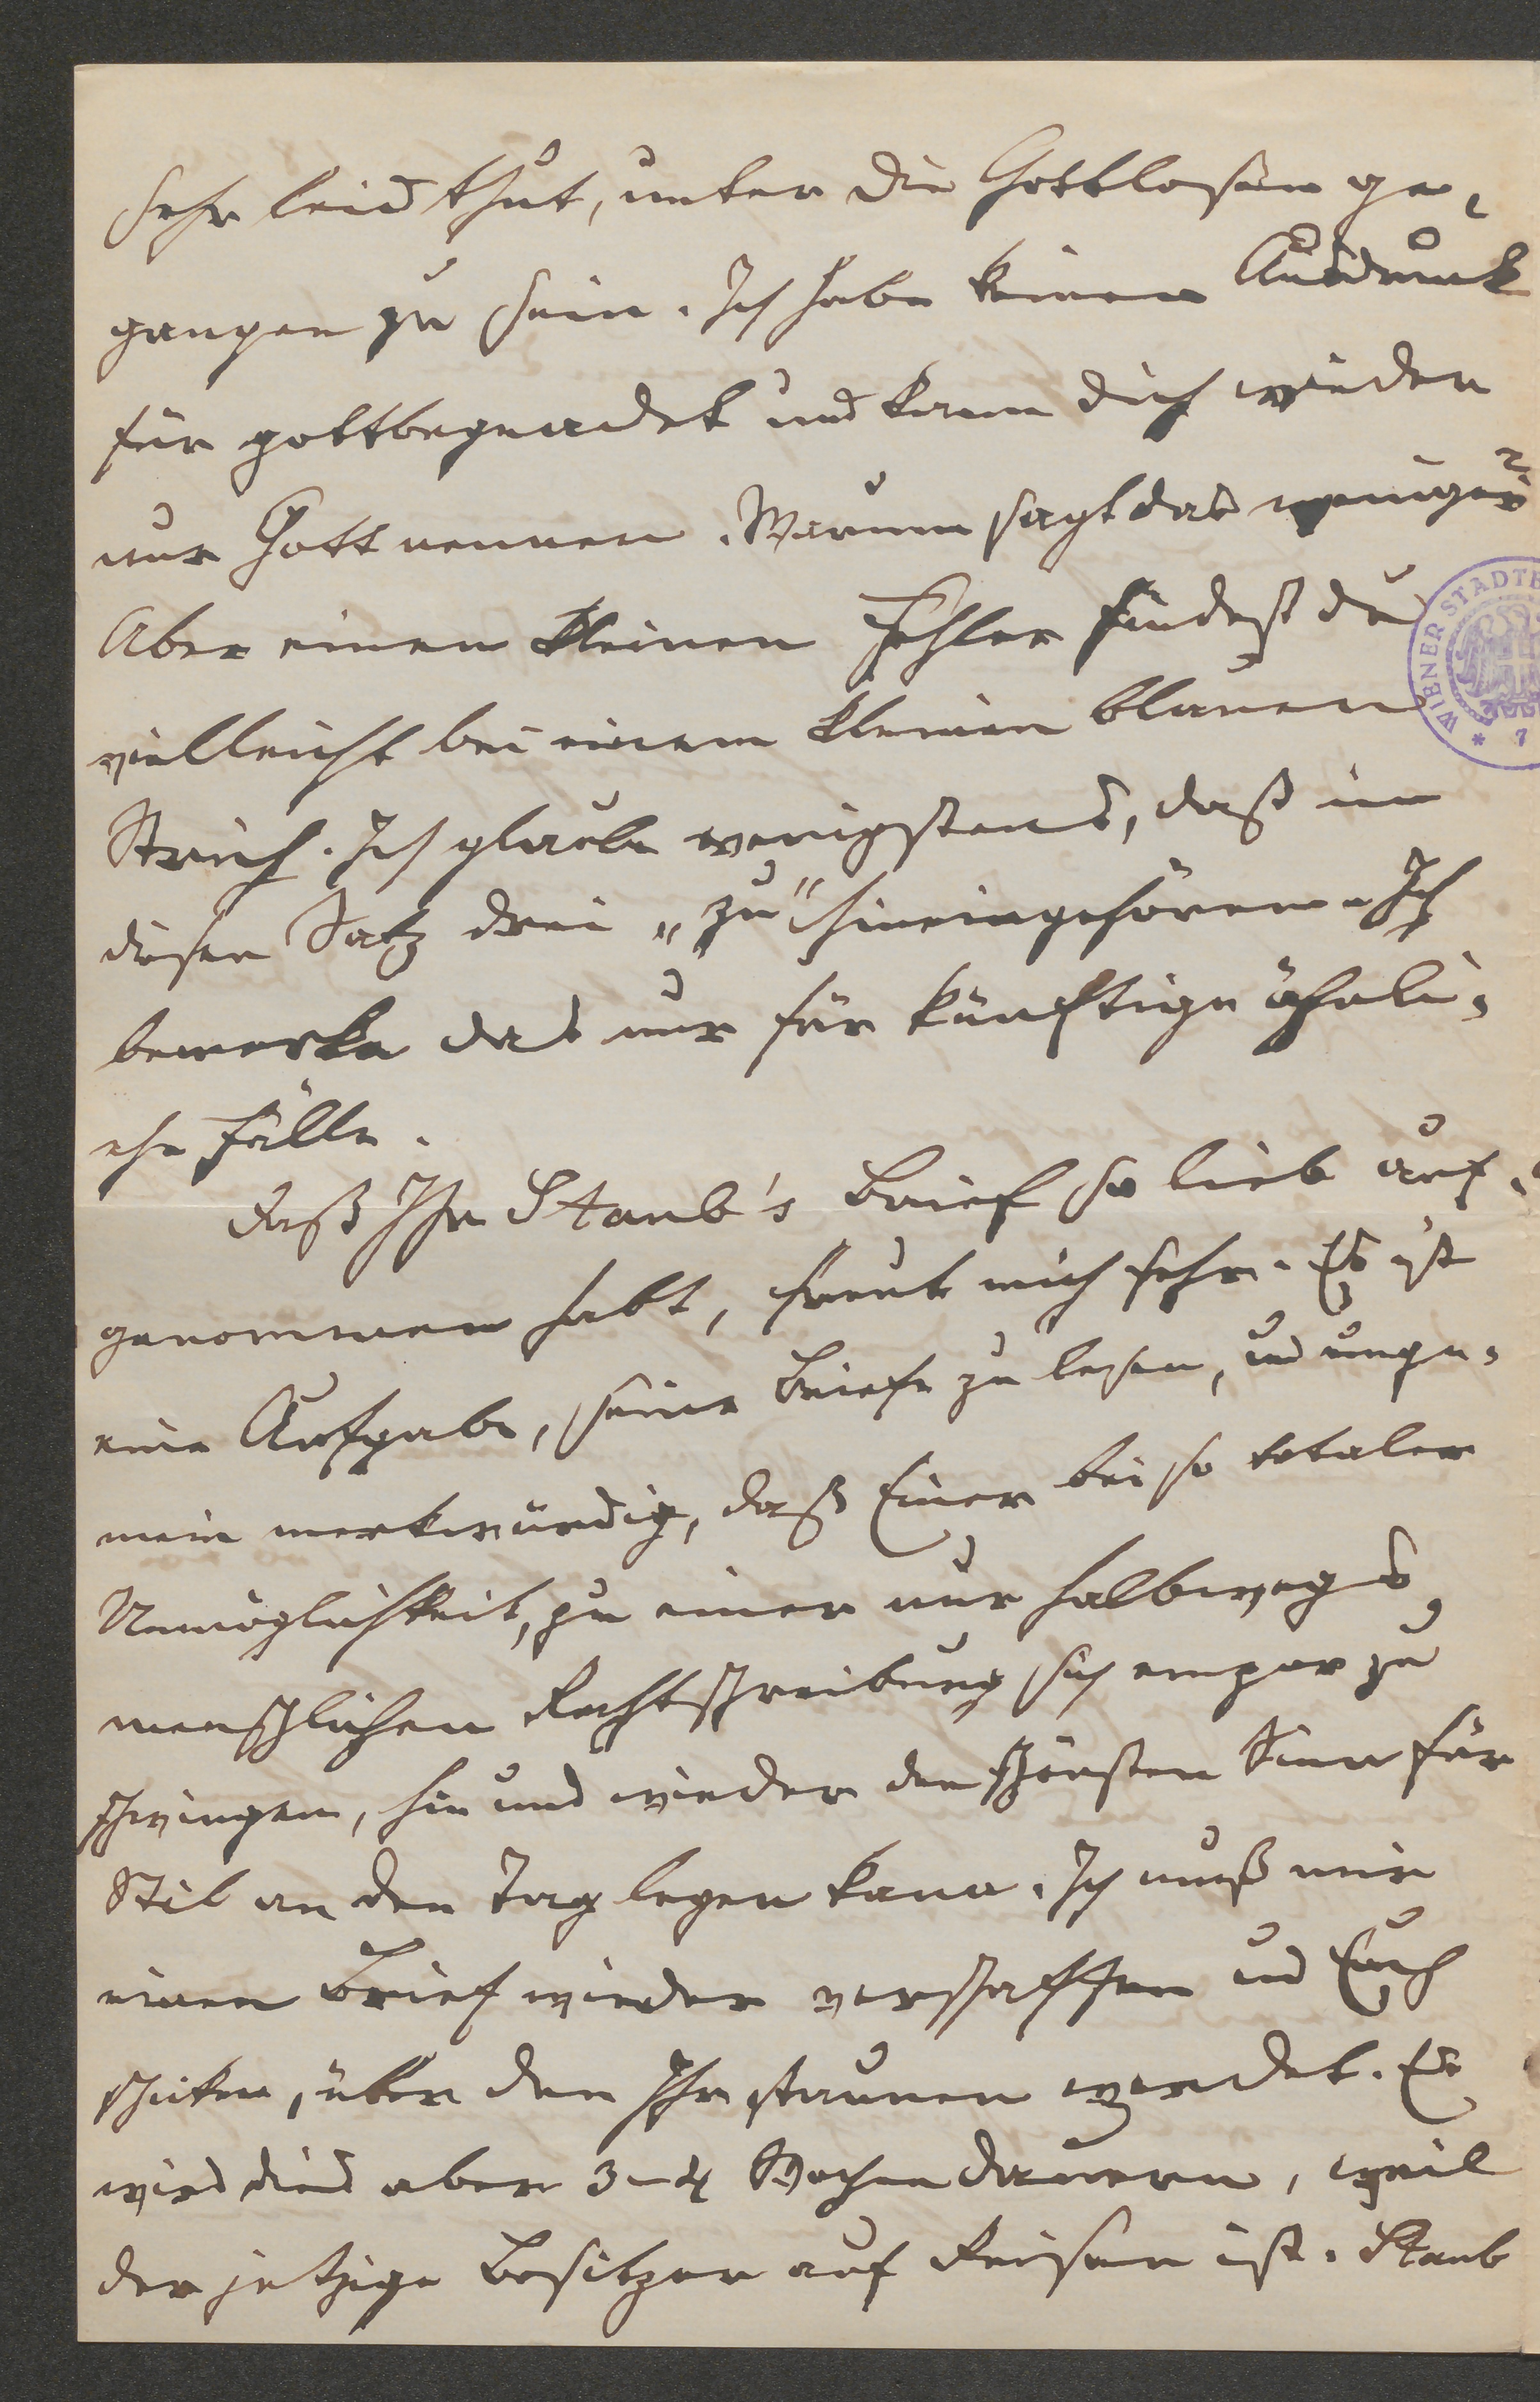 sehr leid thut, unter die Gottlosen ge-
gangen zu sein. Ich habe keinen Ausdruck
für gottbegnadet und kann dich wieder
nur Gott nennen. Warum sagt das weniger?
Aber einen kleinen Fehler findest du
vielleicht bei einem kleinen blauen
Strich. Ich glaube wenigstens, daß in
diesen Satz drei „zu" hineingehören. Ich
bemerke das nur für künftige ähnli-
che Fälle.
Daß Ihr Staub's Brief so lieb auf-
genommen habt, freut mich sehr. Es ist
eine Aufgabe, seine Briefe zu lesen, und unge-
mein merkwürdig, daß Einer bei so totaler
Unmöglichkeit, zu einer nur halbwegs
menschlichen Rechtschreibung sich empor zu
schwingen, hin und wieder den schönsten Sinn für
Stil an den Tag legen kann. Ich muß mir
einen Brief wieder verschaffen und Euch
schicken, über den Ihr staunen werdet. Es
wird dies aber 3-4 Wochen dauern, weil
der jetzige Besitzer auf Reisen ist. Staub
WIENER STADTB
* 7